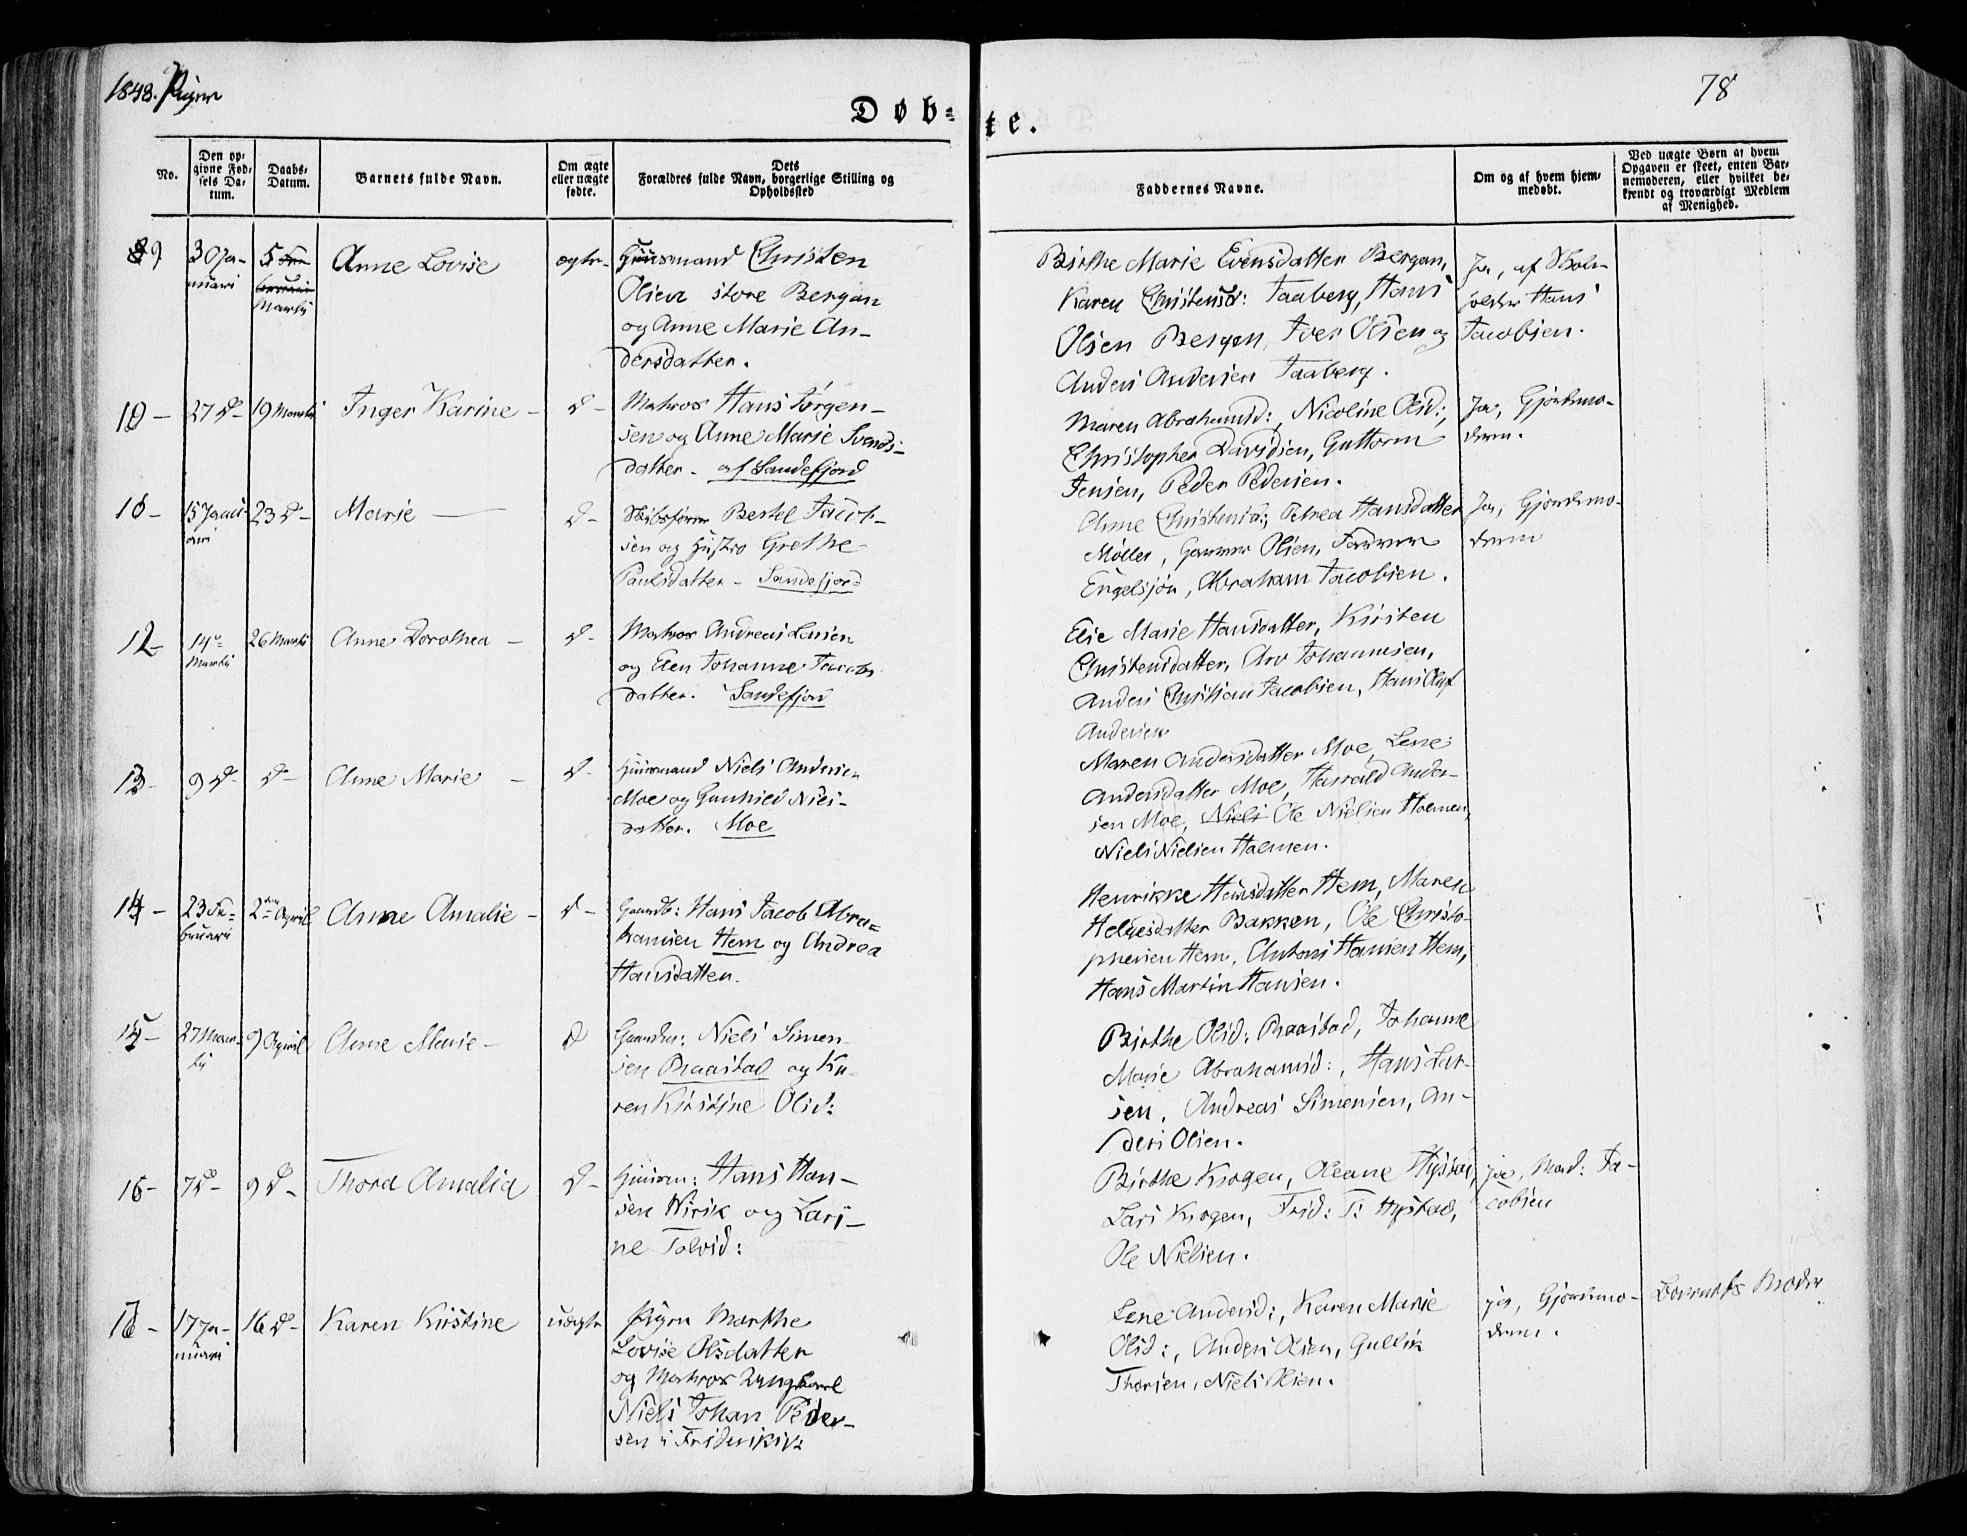 1848. Piger
78
Døb-
te.
No.
Den op-
givne Fød-
sels Da-
tum.
Daabs-
Datum.
Barnets fulde Navn.
Om ægte
eller uægte
fødte.
Dets
Forældres fulde Navn, borgerlige Stilling og
Opholdssted
Faddernes Navne.
Om og af hvem hjem-
medøbt.
Ved uægte Børn at hvem
Opgaven er skeet, enten Bar-
nemoderen, eller hvilket be-
kjendt og troværdigt Medlem
af Menighed.
9
30 Ja-
nuari
5 Fe-
bruari
Martii
Anne Lovise
ægte-
Huusmand Christen
Olsen store Bergan
og Anne Marie An-
dersdatter.
Birthe Marie Evensdatter Bergan,
Karen Christensd: Taaberg, Hans
Olsen Bergan, Iver Olsen og
Anders Andersen Taaberg.
Ja, af Skole-
holder Hans
Jacobsen.
10 -
27 D-
19 Martii
Inger Karine -
D -
Matros Hans Jørgen-
sen og Anne Marie Svends-
datter - af Sandefjord
Maren Abrahamsd:, Nicoline Olsd:,
Christopher Davidsen, Guttorm
Jensen, Peder Pedersen.
Ja, Gjordemo-
deren.
15 Janu-
ari
23 D-
Marie
D-
Skibsfører Bertel Jacob-
sen og Hustro Grethe
Paulsdatter - Sandefjord
Anne Christensd:, Petrea Hansdatter
Møller, Gunner Olsen,
Engelsjøn, Abraham Jacobsen.
Ja, Gjordemo-
deren
12 -
14de
Martii
26 Martii
Anne Dorothea -
D-
Matros Andreas Larsen
og Elen Johanne Jacobs
datter. Sandefjord
Elie Marie Hansdatter, Kirsten
Christensdatter, Arv Johannesen,
Anders Christian Jacobsen, Hans Oluf
Andersen
13 -
9 D-
D-
Anne Marie -
D-
Huusmand Niels Andersen
Moe og Gunhild Niels-
datter. Moe
Maren Andersdatter Moe, Lene
Andersdatter Moe, Harrald Ander-
sen Moe, Niels Ole Nielsen Holmen,
Niels Nielsen Holmen.
14 -
23 Fe-
bruari
2den April
Anne Amalie -
D -
Gaardb: Hans Jacob Abra-
hamsen Hem og Andrea
Hansdatter.
Henrikke Hansdatter Hem, Maren
Helgesdatter Bakken, Ole Christo-
phersen Hem, Anthoni Hansen Hem,
Hans Martin Hansen.
15 -
27 Mar-
tii
9 April
Anne Marie -
D
Gaardbr: Niels Simen-
sen Praastad og Ka-
ren Kirstine Olsd:
Birthe Olsd: Praastad, Johanne
Marie Abrahamsd:, Hans Lar-
sen, Andreas Simensen, An-
ders Olsen.
16 -
7 D-
9 D-
Thora Amalia
D-
Huusm: Hans Han-
sen Virik og Lari-
ne Tolvsd:
Birthe Krogen, Oleane Hystad,
Lars Krogen, Frid: T: Hystad,
Ole Nielsen.
ja, Mad: Ja-
cobsen
17 -
17 Ja-
nuari
16 D-
Karen Kirstine
uægte
Pigen Marthe
Lovise Olsdatter
og Matros Ungkarl
Niels Johan Peder-
sen i Frideriksv:
Lene Andersd:, Karen Marie
Olsd:, Anders Olsen, Gullik
Thorsen, Niels Olsen.
ja, Gjordemo-
deren.
Barnets Moder